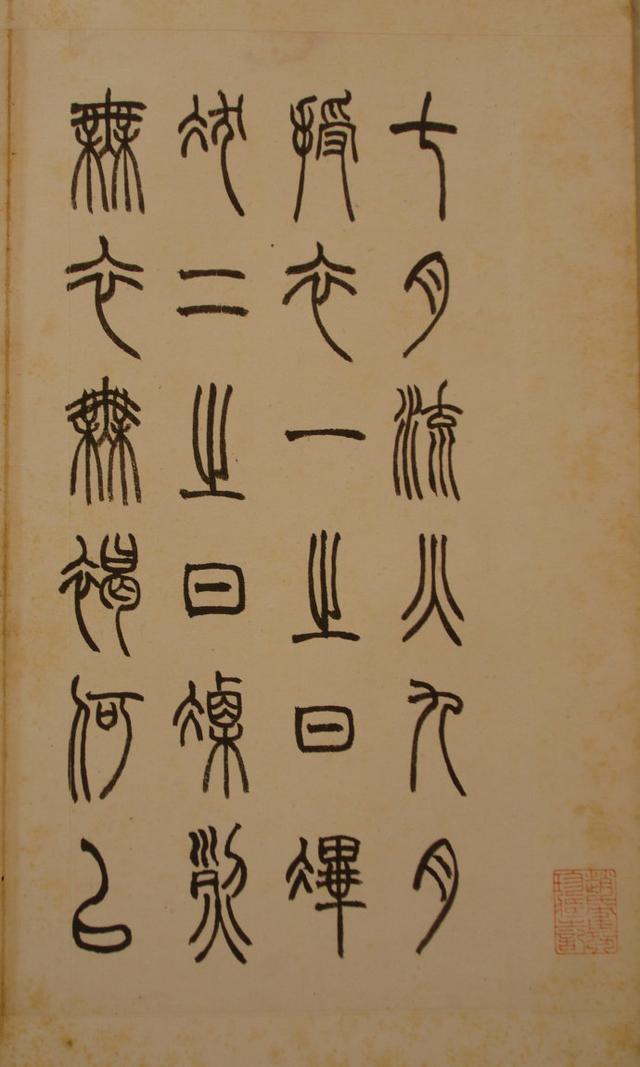 七月流火九月
授衣一之日㓖
冹二之日凓烈
無衣無褐何以